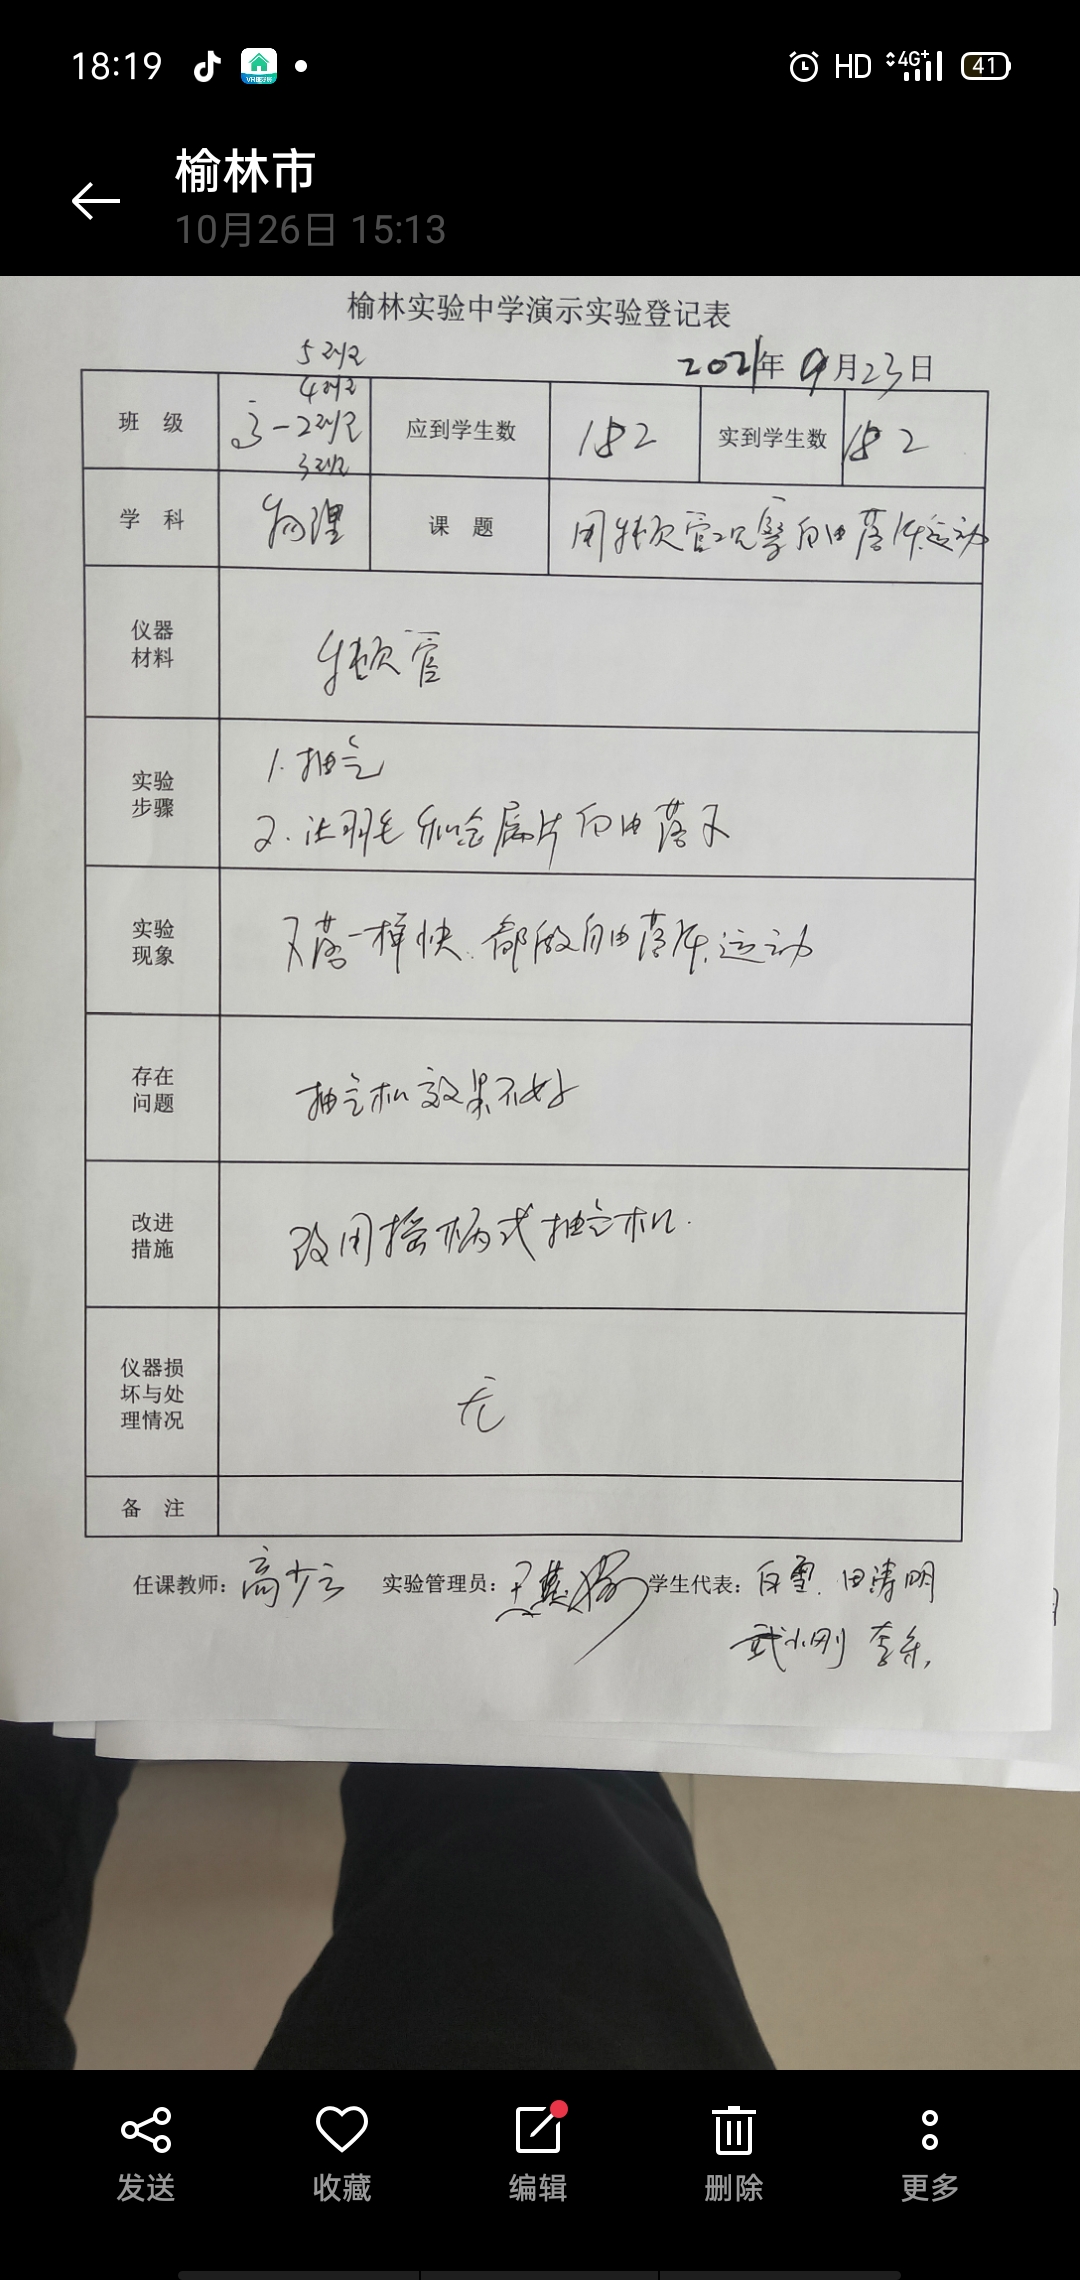 18:19 HD 4G+ 41
榆林市
10月26日 15:13
榆林实验中学演示实验登记表
2021年9月23日
5班
4班
班级 高一2班 应到学生数 182 实到学生数 182
3班
学科 物理 课题 用牛顿管观察自由落体运动
仪器材料 牛顿管
实验步骤 1.抽气
2.让羽毛和金属片自由落下
实验现象 下落一样快.都做自由落体运动
存在问题 抽气机效果不好
改进措施 改用摇柄式抽气机.
仪器损坏与处理情况 无
备注
任课教师: 高少云 实验管理员: 学生代表: 白雪. 田涛明
武小刚 李乐
发送 收藏 编辑 删除 更多